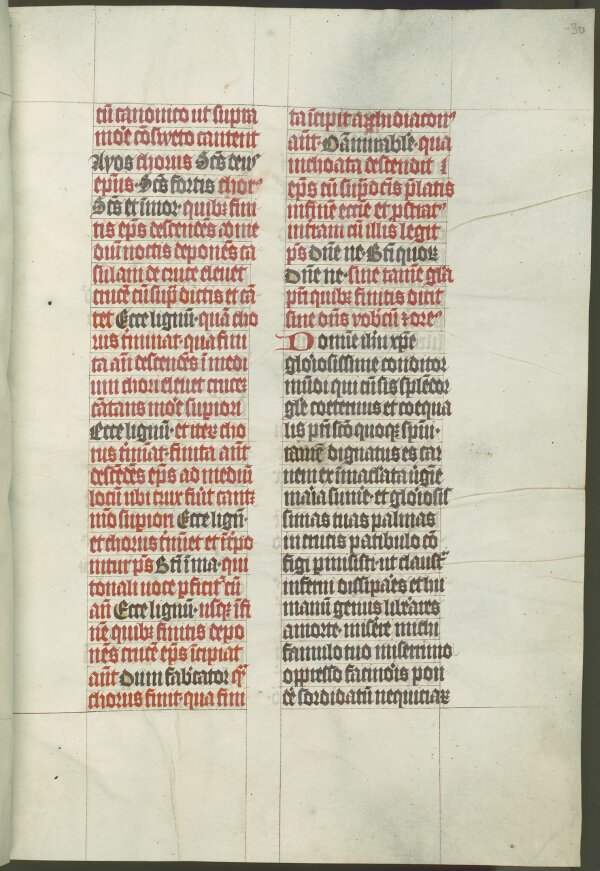 30
cū canonico ut supra
mōe cōsueto cantent
Ayos chorus Scs deus
epūs · Scs fortis chorꝰ
Scs et īmor · quibꝫ fini
tis eps descendēs
diuī noctis deponēs ca
sulam de cruce eleuet
crucē cū sup̄dictis et cā
tet Ecce lignū · quā cho
rus finiat · qua fini
ta aū descendēs ī medi
um chori eleuet crucē
cātans mōe supiori
Ecce lignū · et iteꝝ cho
rus finiat · finita aūt
descēdēs eps ad mediū
locū ubi crux
mō supiori Ecce lign̄ ·
et chorus finiet et īcipo
nitur ps Bti īma · qui
tonali uoce pficit cū
an̄ Ecce lignū · usqꝫ ī fi
nē quibꝫ finitis depo
nēs crucē eps īcipiat
aūt Dum fabricator
chorus finit · qua fini
ta īcipit archidiaconꝰ
aūt · O admirable · qua
inchoata descendit
eps cū sup̄dcīs platis
infine eccle et
infram cū illis legit
ps Dne ne · Bti quoꝝ
Dne ne · sine tamē glā
pri quibꝫ finitis dicit
sine dn̄s vobcū
Domine ihu xp̄e
gloiosissime conditor
mūdi qui cū sis splēdor
gle coeternus et coequa
lis pri scōqꝫ spūi ·
carnē dignatus es car
nem ex īmaclata uigīe
maria sume · et gloiosis
simas tuas palmas
in crucis patibulo cō
figi pmisisti · ut claustra
inferni dissipares et hu
manū genus liberares
a morte · misere michi
famulo tuo miserrimo
oppresso facinoris pon
de sordidatū nequiciaꝝ